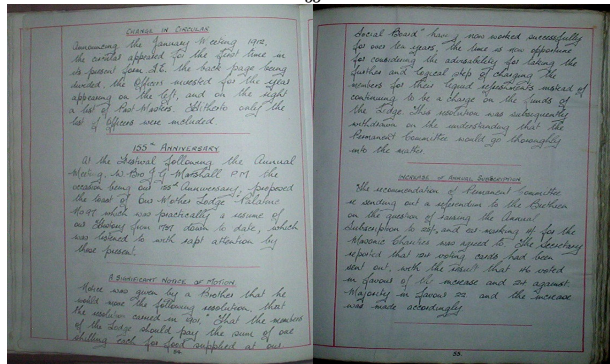 CHANGE IN CIRCULAR
Announcing the January Meeting 1912,
the circular appeared for the first time in
its present form I.E. the back page being
divided, the Officers invested for the year
appearing on the left, and on the right
a list of Past Masters. Hitherto only the
list of Officers were included.
155th ANNIVERSARY
At the Festival following the Annual
Meeting, W. Bro J G Marshall P M the
occasion being our 155th Anniversary, proposed
the toast of our Mother Lodge - Palatine
No 97 which was practically a resume of
our History from 1757 down to date, which
was listened to with rapt attention by
those present.
A SIGNIFICANT NOTICE OF MOTION
Notice was given by a Brother that he
would move the following resolution, "that
the resolution carried in 1901, "That the members
of the Lodge should pay the sum of one
shilling each for food supplied at our
Social Board" having now worked successfully
for over ten years, the time is now opportune
for considering the advisability for taking the
further and logical step of charging the
members for their liquid refreshments instead of
continuing to be a charge on the funds of
the Lodge. This resolution was subsequently
withdrawn on the understanding that the
Permanent Committee would go thoroughly
into the matter.
INCREASE OF ANNUAL SUBSCRIPTION
The recommendation of Permanent Committee
in sending out a referendum to the Brethren
on the question of raising the Annual
Subscription to and ear marking for the
Masonic Charities was agreed to. The Secretary
reported that voting cards had been
sent out, with the result that 46 voted
in favour of the increase and 24 against.
Majority in favour 22 and the increase
was made accordingly.
55.